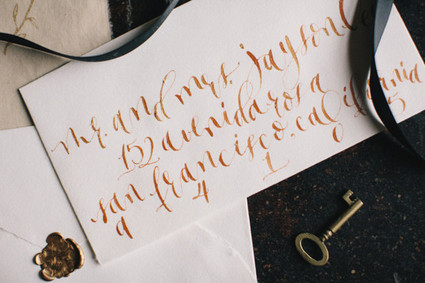 mr. and mrs. jayson
152 avenida rosa
san. francisco. california
9 4 1 0 5